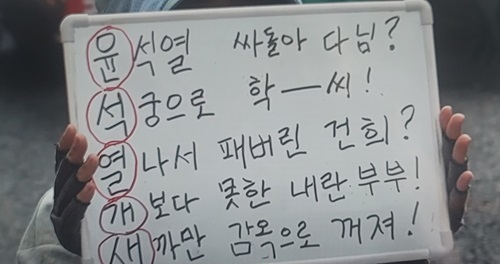 윤석열 싸돌아 다님?
석궁으로 학—씨!
열나서 패버린 건희?
개보다 못한 내란 부부!
새까만 감옥으로 꺼져!